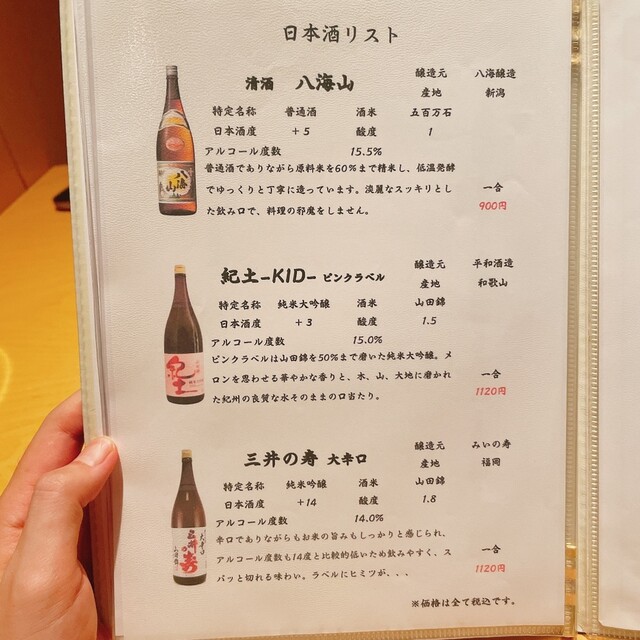 日本酒リスト
清酒 八海山 醸造元 八海醸造
産地 新潟
特定名称 普通酒 酒米 五百万石
日本酒度 +5 酸度 1
アルコール度数 15.5%
普通酒でありながら原料米を60%まで精米し、低温発酵
でゆっくりと丁寧に造っています。淡麗なスッキリとし
た飲み口で、料理の邪魔をしません。
一合
900円
八海山
紀土-KID- ピンクラベル 醸造元 平和酒造
産地 和歌山
特定名称 純米大吟醸 酒米 山田錦
日本酒度 +3 酸度 1.5
アルコール度数 15.0%
ピンクラベルは山田錦を50%まで磨いた純米大吟醸。メ
ロンを思わせる華やかな香りと、水、山、大地に磨かれ
た紀州の良質な水そのままの口当たり。
一合
1120円
紀土
三井の寿 大辛口 醸造元 みいの寿
産地 福岡
特定名称 純米吟醸 酒米 山田錦
日本酒度 +14 酸度 1.8
アルコール度数 14.0%
辛口でありながらもお米の旨みもしっかりと感じられ、
アルコール度数も14度と比較的低いため飲みやすく、ス
パッと切れる味わい。ラベルにヒミツが、、、
一合
1120円
大辛口
三井の寿
山田錦
※価格は全て税込です。